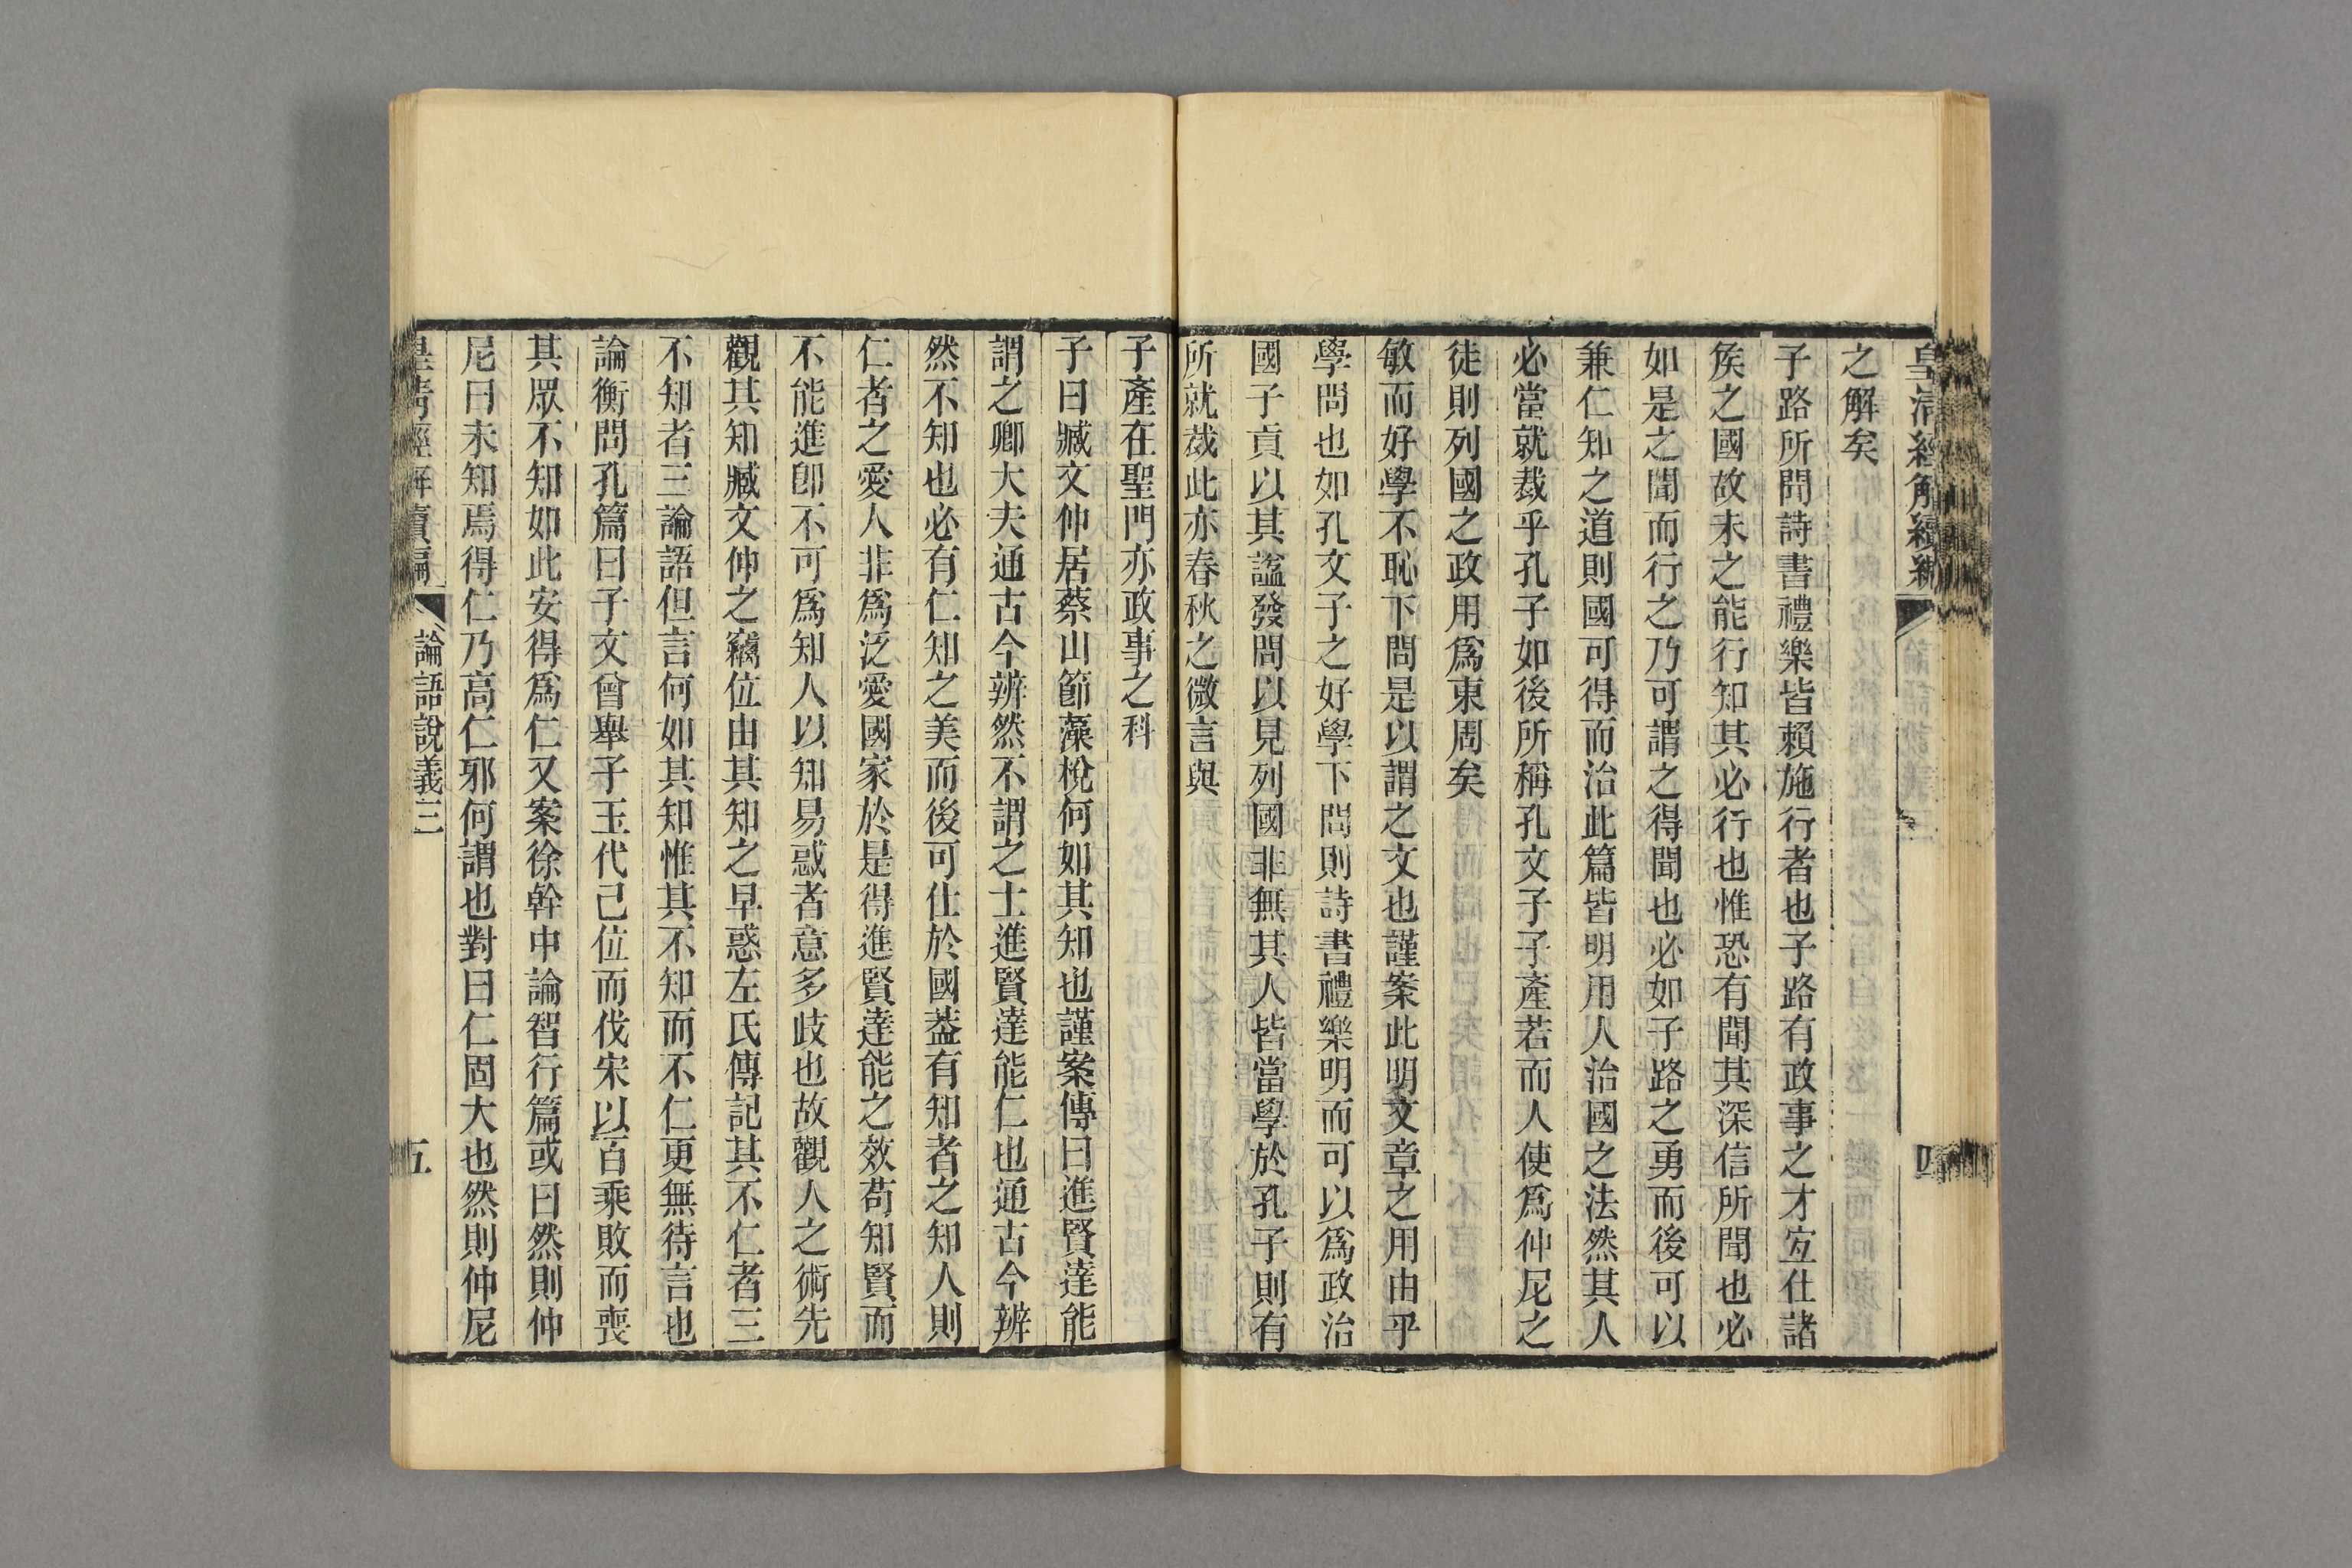 皇清經解續編
四
之解矣
子路所問詩書禮樂皆賴施行者也子路有政事之才宐仕諸
矦之國故未之能行知其必行也惟恐有聞其深信所聞也必
如是之聞而行之乃可謂之得聞也必如子路之勇而後可以
兼仁知之道則國可得而治此篇皆明用人治國之法然其人
必當就裁乎孔子如後所稱孔文子子產若而人使爲仲尼之
徒則列國之政用爲東周矣
敏而好學不恥下問是以謂之文也謹案此明文章之用由乎
學問也如孔文子之好學下問則詩書禮樂明而可以爲政治
國子貢以其諡發問以見列國非無其人皆當學於孔子則有
所就裁此亦春秋之微言與
子產在聖門亦政事之科
子曰臧文仲居蔡山節藻梲何如其知也謹案傳曰進賢達能
謂之卿大夫通古今辨然不謂之士進賢達能仁也通古今辨
然不知也必有仁知之美而後可仕於國葢有知者之知人則
仁者之愛人非爲泛愛國家於是得進賢達能之效苟知賢而
不能進卽不可爲知人以知易惑者意多歧也故觀人之術先
觀其知臧文仲之竊位由其知之早惑左氏傳記其不仁者三
不知者三論語但言何如其知惟其不知而不仁更無待言也
論衡問孔篇曰子文曾舉子玉代己位而伐宋以百乘敗而喪
其眾不知如此安得爲仁又案徐幹中論智行篇或曰然則仲
尼曰未知焉得仁乃高仁邪何謂也對曰仁固大也然則仲尼
皇清經解續編
論語說義三
五